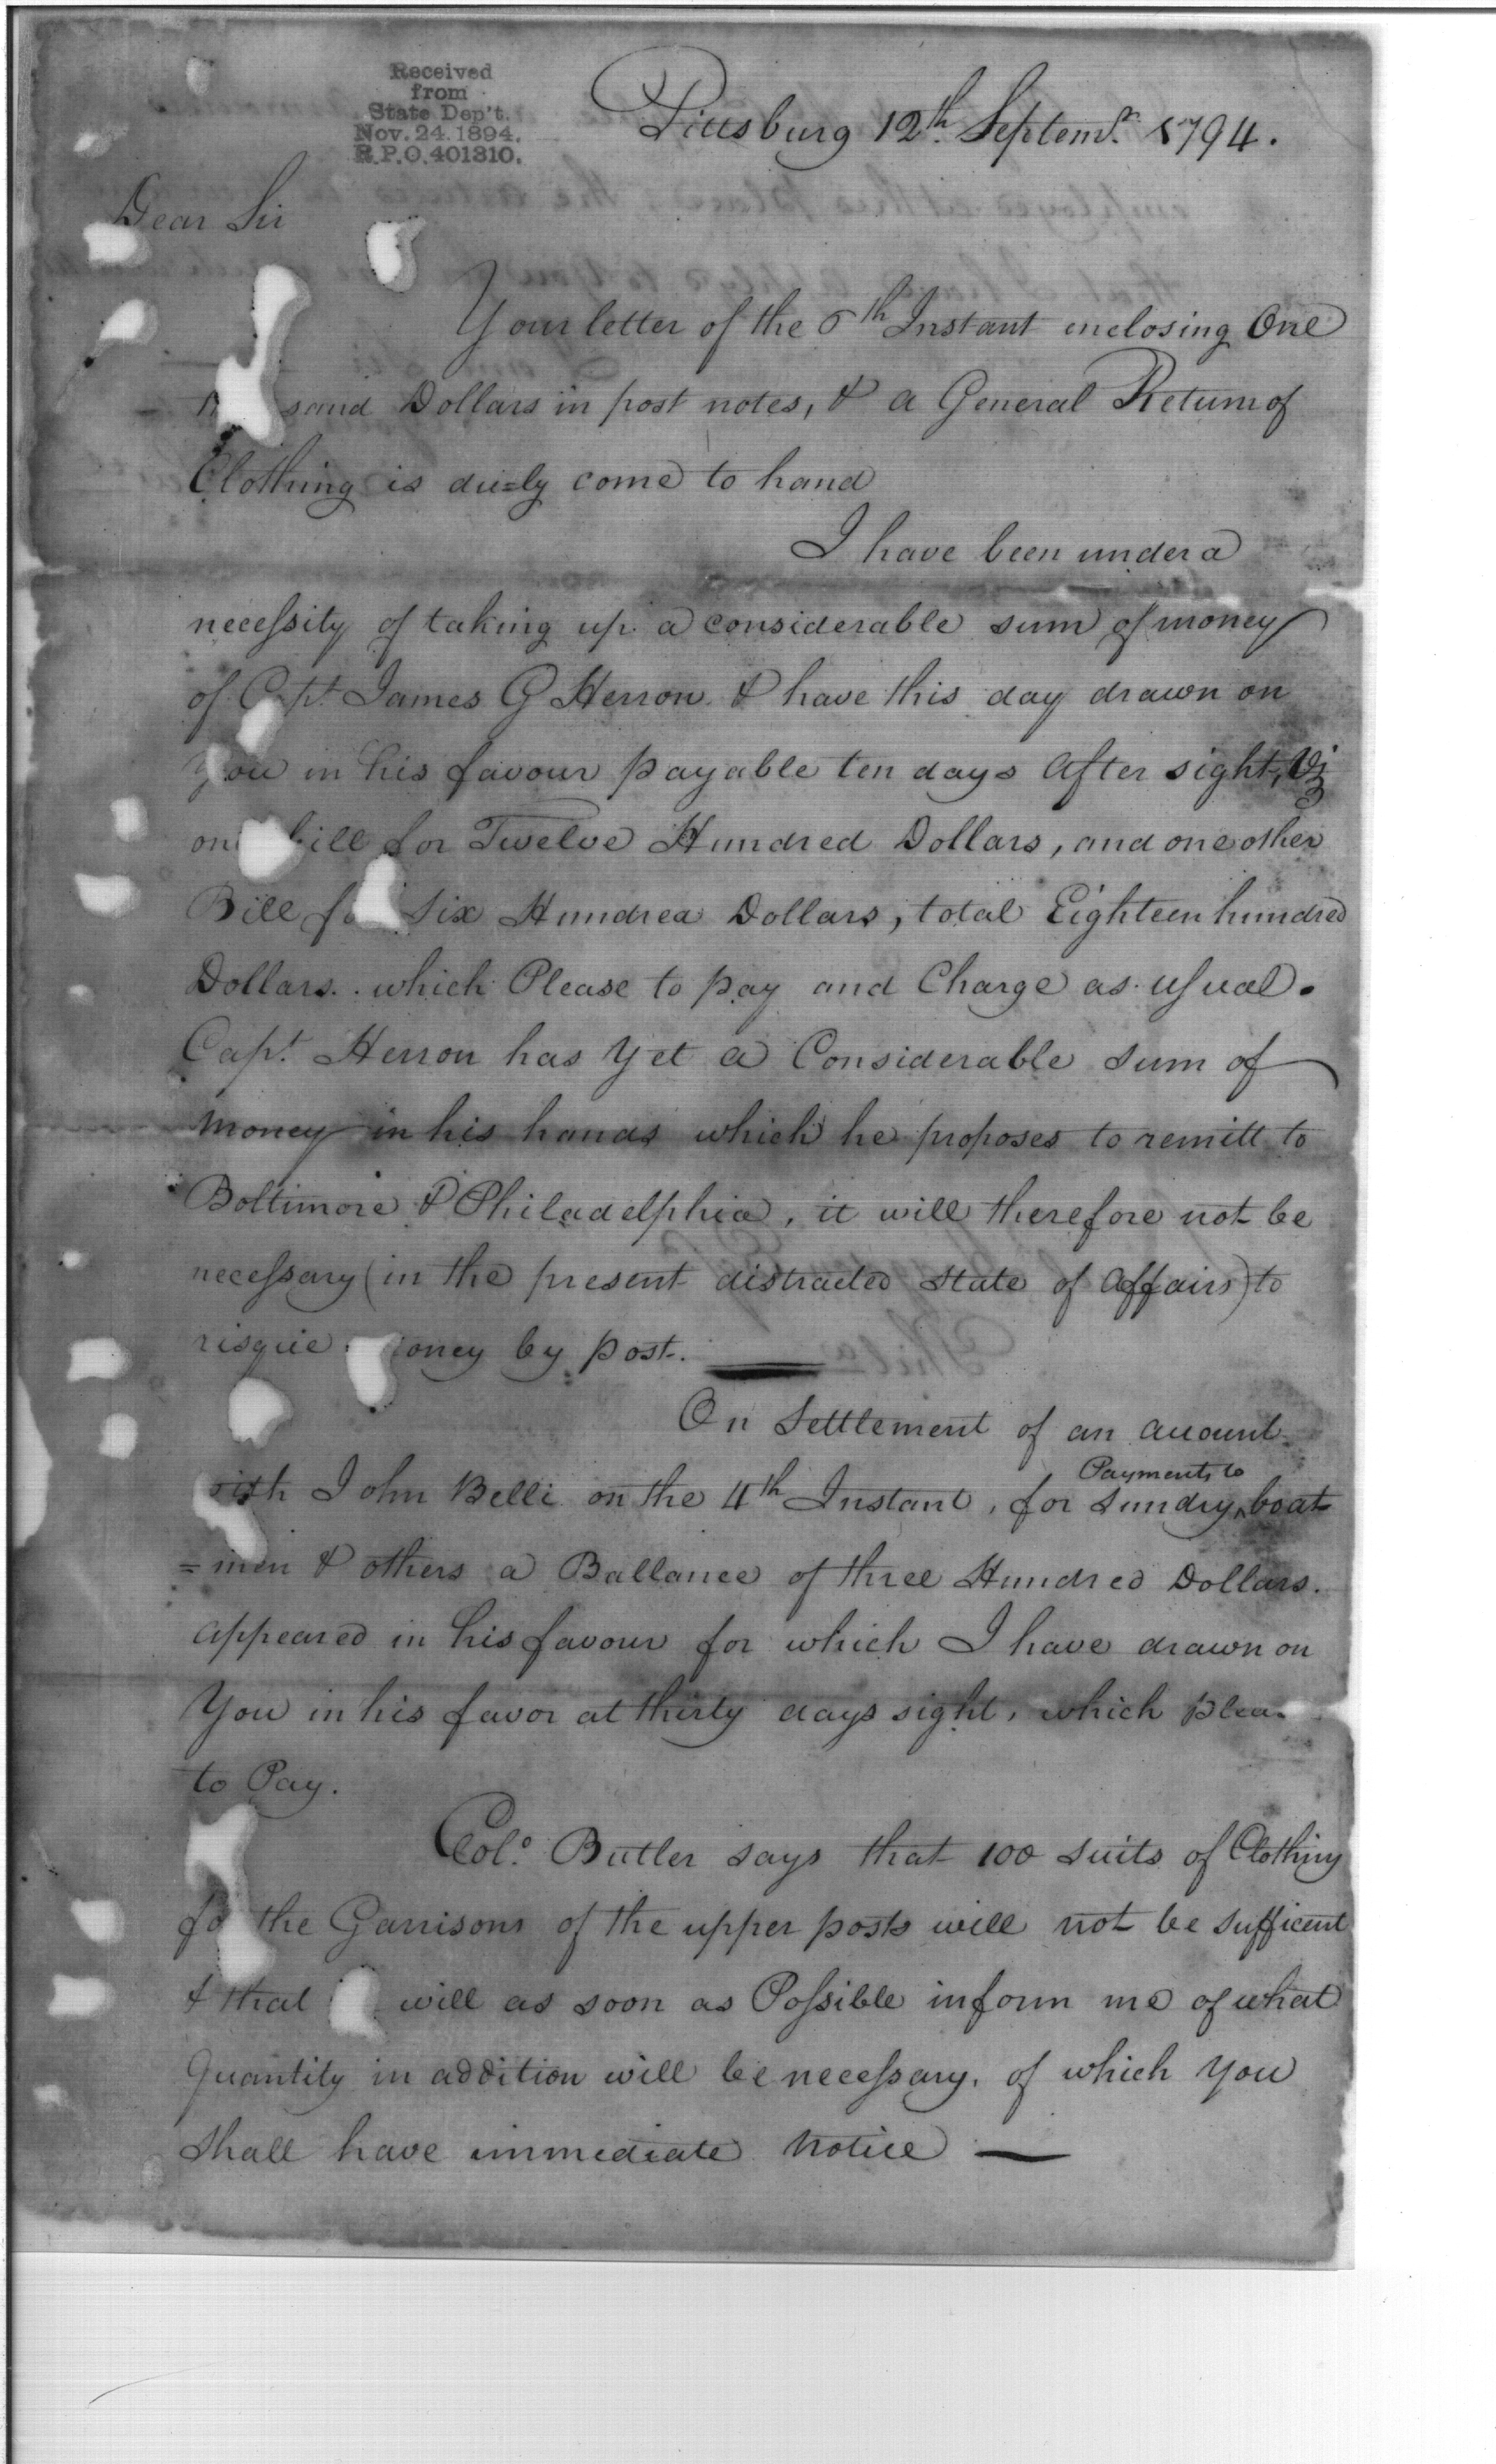 Received
from
State Dep't.
Nov. 24. 1894.
R.P.O. 401310.
Pittsburg 12th Septemr. 1794.
Dear Sir
Your letter of the 6th Instant inclosing One
sand Dollars in post notes, & a General Return of
Clothing is du=ly come to hand
I have been under a
necessity of taking up a considerable sum of money
of Capt. James G Herron & have this day drawn on
You in his favour payable ten days after sight, Viz
one bill for Twelve Hundred Dollars, and one other
Bill for Six Hundred Dollars, total Eighteen hundred
Dollars. which Please to pay and Charge as usual.
Capt. Herron has Yet a Considerable Sum of
money in his hands which he proposes to remitt to
Boltimore & Philadelphia, it will therefore not be
necessary (in the present distracted State of Affairs) to
risque money by post.
On Settlement of an account
with John Belli on the 4th Instant, for Sundry Payments to boat
=men & others a Ballance of three Hundred Dollars.
appeared in his favour for which I have drawn on
You in his favor at thirty days sight, which Pleas
to Pay.
Colo. Butler says that 100 Suits of Clothing
for the Garrisons of the upper posts will not be Sufficent
& that will as soon as Possible inform me of what
Quantity in addition will be necessary. of which You
Shall have immediate Notice